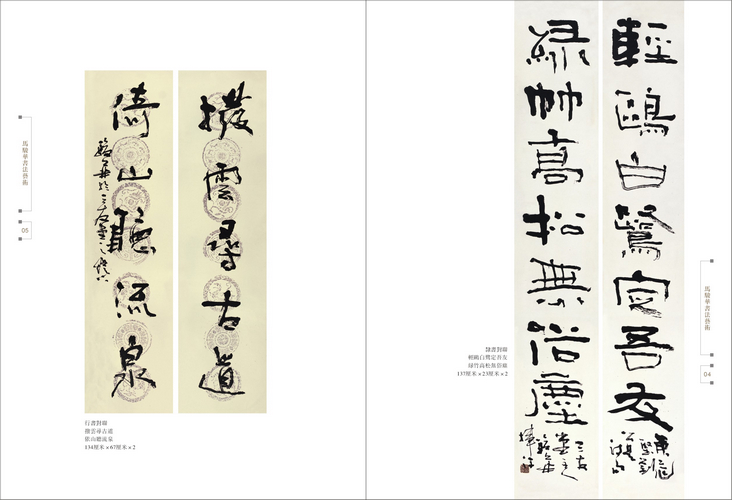 馬駿華書法藝術
04
輕鷗白鷺定吾友
綠竹高松無俗塵
隸書對聯
輕鷗白鷺定吾友
綠竹高松無俗塵
137厘米×23厘米×2
撥雲尋古道
倚山聽流泉
行書對聯
撥雲尋古道
依山聽流泉
134厘米×67厘米×2
馬駿華書法藝術
05